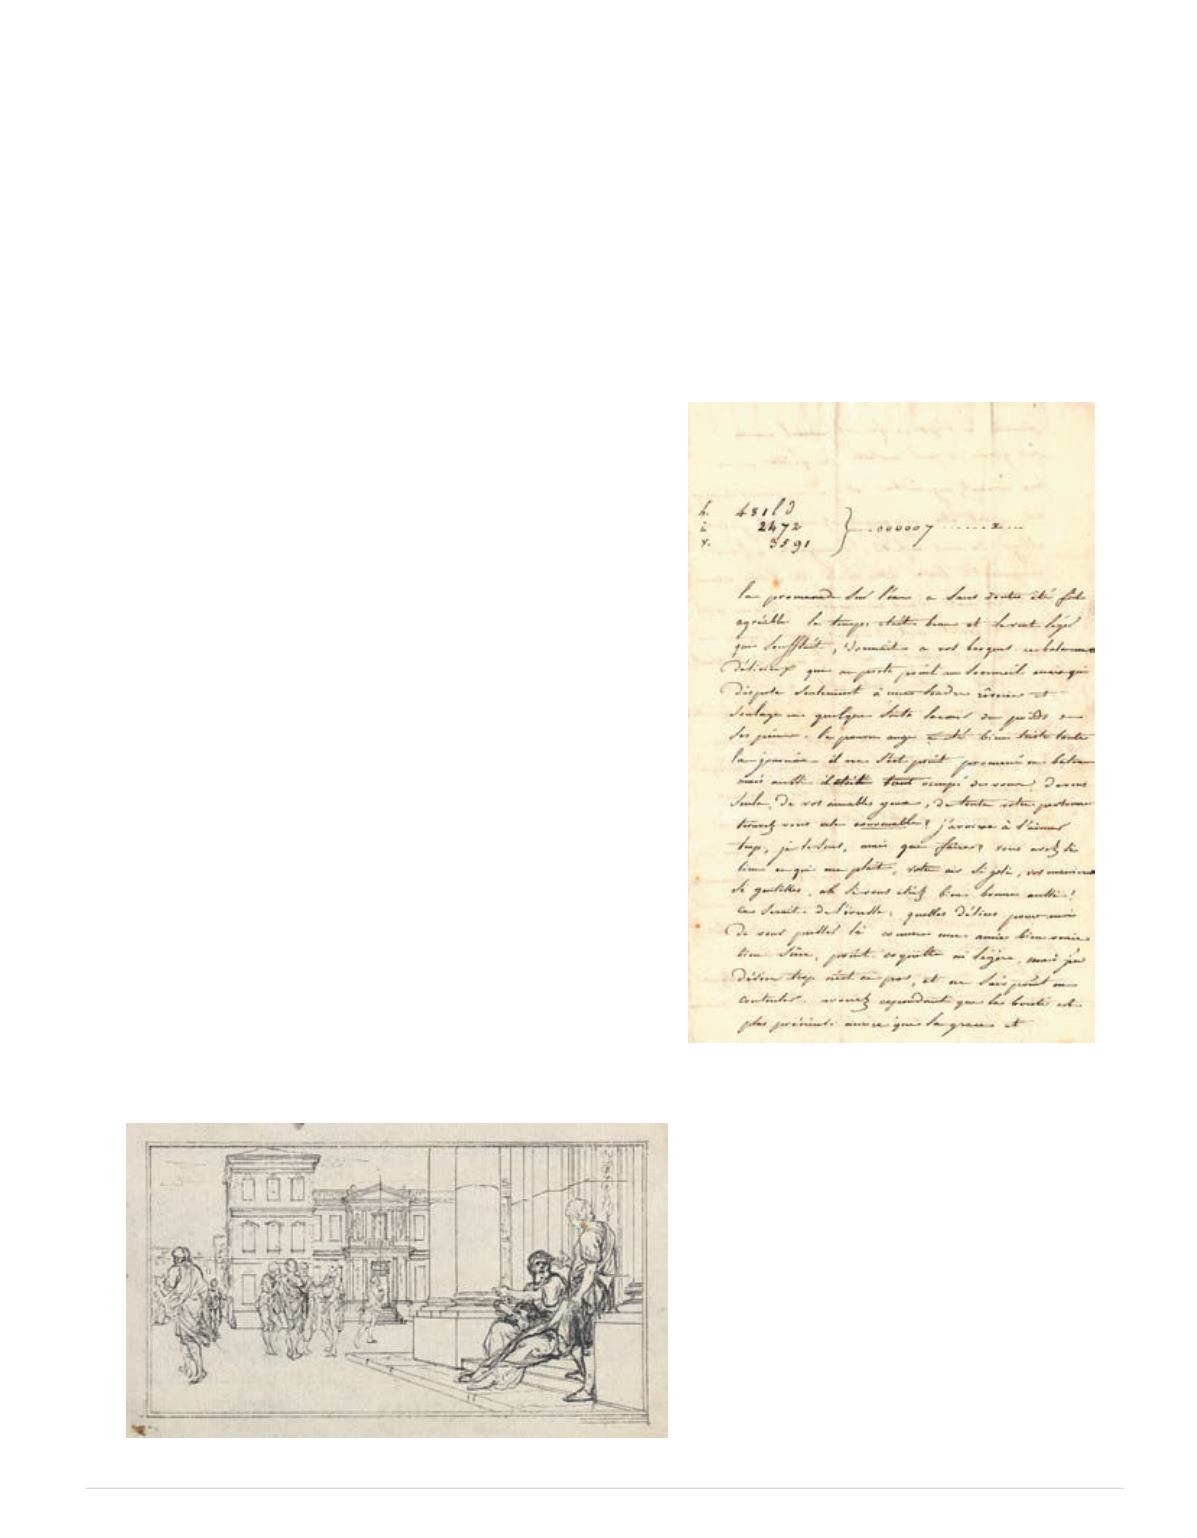 h. 481
i. 2472 000007 x
r. 3591
la promenade sur l'eau a sans doute été fort
agréable le temps était beau et le vent léger
qui soufflait, donnait a vos barques
délicieux que ne porte point au sommeil mais qui
dispose seulement à une tendre rêverie et
soulage en quelque sorte le du poids de
ses peines. le pauvre ange bien triste toute
la journée il ne s'est point promené en bateau
mais aussi il était tant occupé de vous, de vous
seule, de vos aimables yeux, de toute votre personne
trouvez vous cela convenable? j'arrive à t'aimer
trop, je le sens, mais que faire? vous avez si
bien ce qui me plait, votre air si joli, vos manières
si gentilles, ah si vous étiez bien bonne aussi!
ce serait de quelles délices pour moi
de vous une amie bien vraie
bien sûre, point coquette ni légère, mais j'en
désire trop n'est ce pas, et ne sais point me
contenter. avouez cependant que la bonté est
plus précieuse encore que la grace et